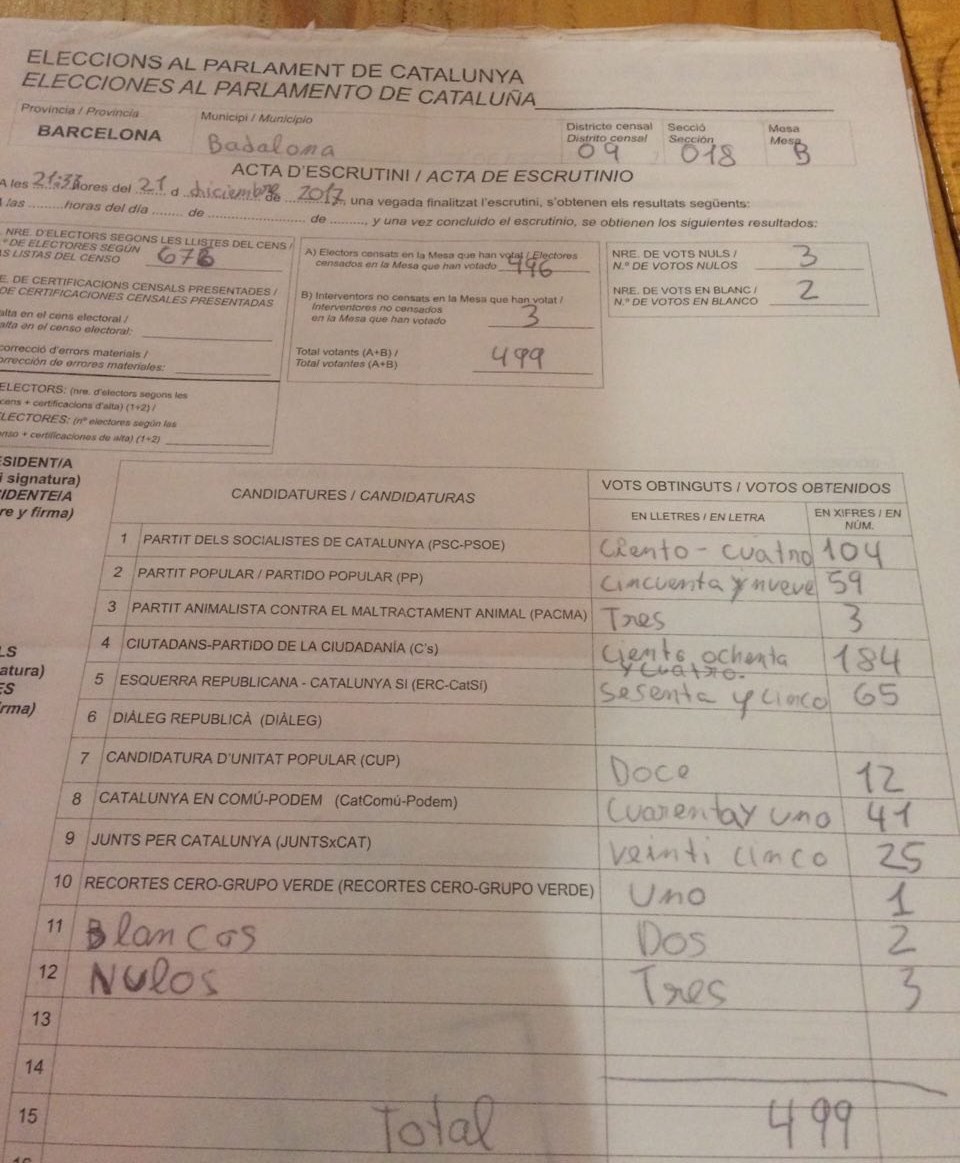 ELECCIONS AL PARLAMENT DE CATALUNYA
ELECCIONES AL PARLAMENTO DE CATALUÑA
Província / Provincia
BARCELONA
Municipi / Municipio
Badalona
Districte censal
Distrito censal
09
Secció
Sección
018
Mesa
Mesa
B
ACTA D'ESCRUTINI / ACTA DE ESCRUTINIO
A les 21:33 hores del 21 d diciembre de 2017, una vegada finalitzat l'escrutini, s'obtenen els resultats següents:
las ......... horas del día ....... de ........................ de ........, y una vez concluido el escrutinio, se obtienen los siguientes resultados:
NRE. D'ELECTORS SEGONS LES LLISTES DEL CENS /
º DE ELECTORES SEGÚN
AS LISTAS DEL CENSO
E. DE CERTIFICACIONS CENSALS PRESENTADES /
DE CERTIFICACIONES CENSALES PRESENTADAS
alta en el cens electoral /
alta en el censo electoral:
correcció d'errors materials /
orrección de errores materiales:
ELECTORS: (nre. d'electors segons les
cens + certificacions d'alta) (1+2) /
LECTORES: (nº electores según las
enso + certificaciones de alta) (1+2)
A) Electors censats en la Mesa que han votat / Electores
censados en la Mesa que han votado 496
B) Interventors no censats en la Mesa que han votat /
Interventores no censados
en la Mesa que han votado 3
Total votants (A+B) /
Total votantes (A+B) 499
NRE. DE VOTS NULS /
N.º DE VOTOS NULOS 3
NRE. DE VOTS EN BLANC /
N.º DE VOTOS EN BLANCO 2
ESIDENT/A
i signatura)
IDENTE/A
re y firma)
LS
atura)
ES
rma)
CANDIDATURES / CANDIDATURAS
VOTS OBTINGUTS / VOTOS OBTENIDOS
EN LLETRES / EN LETRA
EN XIFRES / EN NÚM.
1 PARTIT DELS SOCIALISTES DE CATALUNYA (PSC-PSOE) Ciento - cuatro 104
2 PARTIT POPULAR / PARTIDO POPULAR (PP) cincuenta y nueve 59
3 PARTIT ANIMALISTA CONTRA EL MALTRACTAMENT ANIMAL (PACMA) Tres 3
4 CIUTADANS-PARTIDO DE LA CIUDADANÍA (C's) ciento ochenta y cuatro. 184
5 ESQUERRA REPUBLICANA - CATALUNYA SÍ (ERC-CatSí) Sesenta y cinco 65
6 DIÀLEG REPUBLICÀ (DIÀLEG)
7 CANDIDATURA D'UNITAT POPULAR (CUP) Doce 12
8 CATALUNYA EN COMÚ-PODEM (CatComú-Podem) Cuarenta y uno 41
9 JUNTS PER CATALUNYA (JUNTSxCAT) Veinti cinco 25
10 RECORTES CERO-GRUPO VERDE (RECORTES CERO-GRUPO VERDE) Uno 1
11 Blancos Dos 2
12 Nulos Tres 3
13
14
15 Total 499